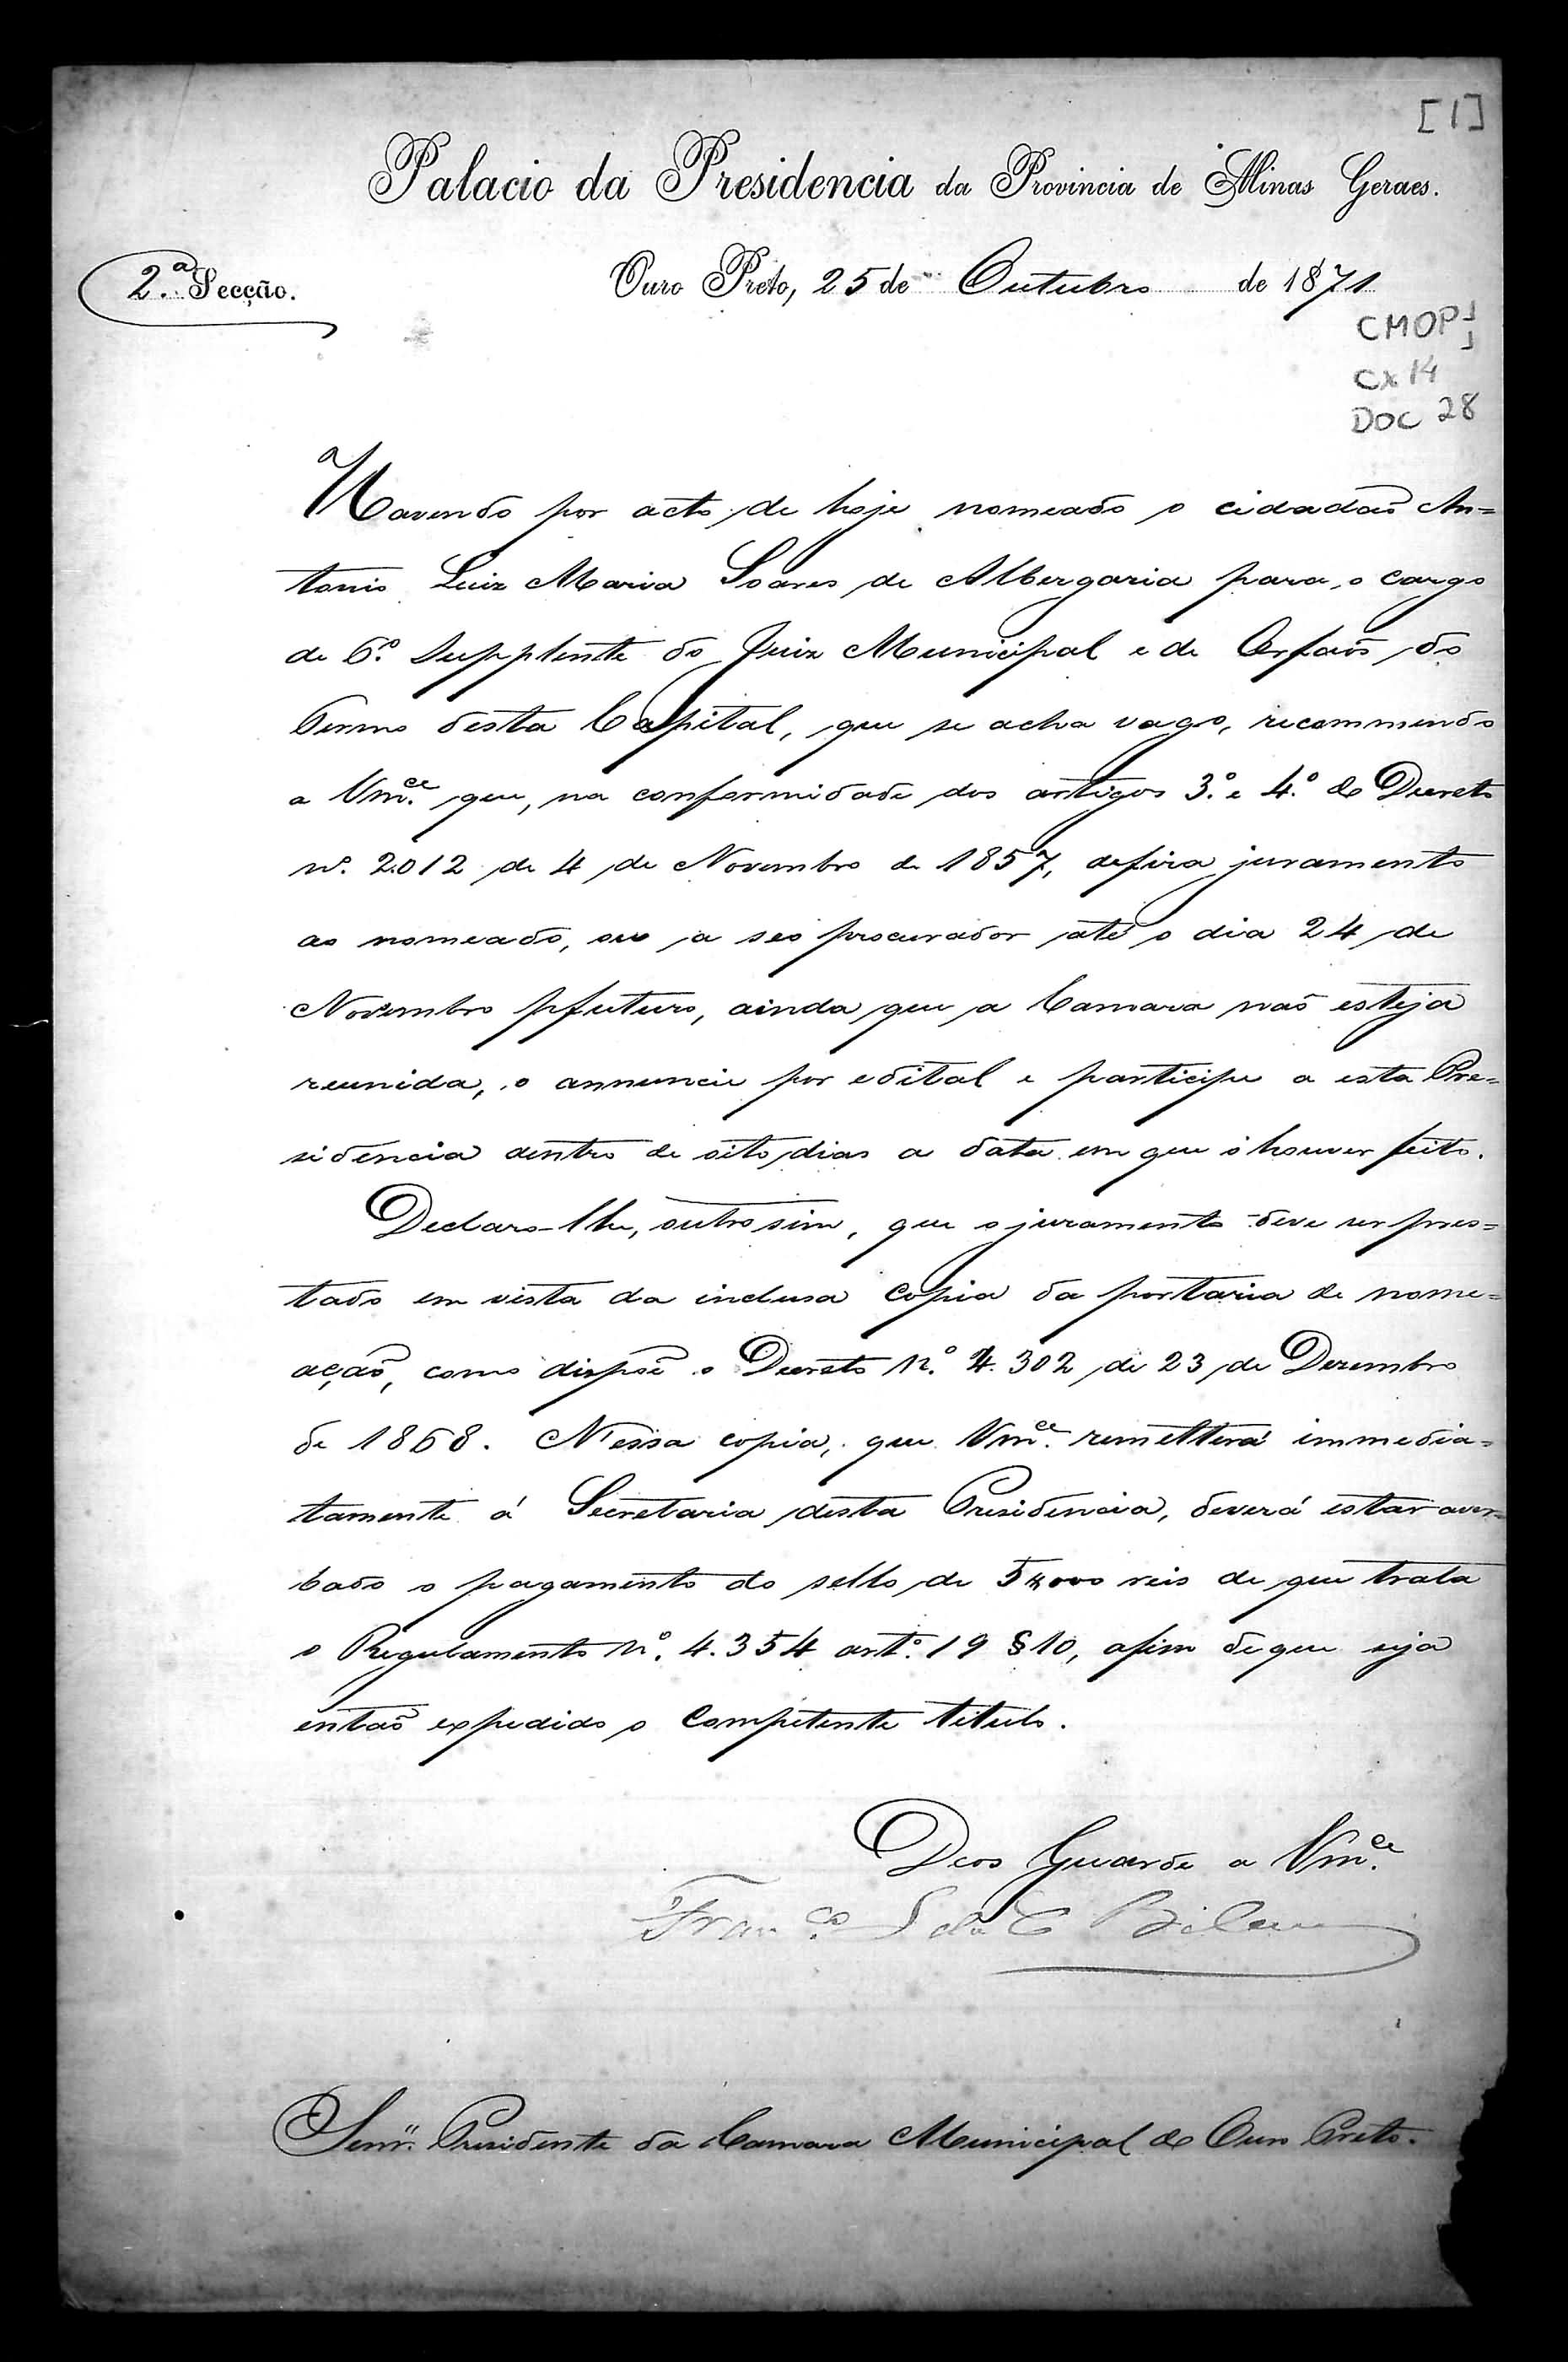 [1]
Palacio da Presidencia da Provincia de Minas Geraes.
2.ª Secção.
Ouro Preto, 25 de Outubro de 1871
CMOP
CX 14
DOC 28
Havendo por acto de hoje nomeado o cidadaõ An=
tonio Luiz Maria Soares de Albergaria para o cargo
de 6.º Supplente do Juiz Municipal e de Orfaõs do
Termo desta Capital, que se acha vago, recommendo
a Vm.ce que, na conformidade dos artigos 3.º e 4.º do Decreto
nº. 2012 de 4 de Novembro de 1857, defira juramento
ao nomeado, ou a seo procurador até o dia 24 de
Novembro pfuturo, ainda que a Camara naõ esteja
reunida, o annuncie por edital e participe a esta Pre=
sidencia dentro de oito dias a data em que o houver feito.
Declaro-lhe, outrosim, que o juramento deve ser pres=
tado em vista da inclusa copia da portaria de nome=
açaõ, como dispoẽ o Decreto N.º 4.302 de 23 de Dezembro
de 1868. Nessa copia, que Vm.ce remetterá immedia=
tamente á Secretaria desta Presidencia, deverá estar aver=
bado o pagamento do sello de 5$000 reis de que trata
o Regulamento N.º 4.354 art.º 19 § 10, afim de que seja
entaõ expedido o competente titulo.
Deos Guarde a Vm.ce
Fran.co S da C Belem
Senr. Presidente da Camara Municipal do Ouro Preto.